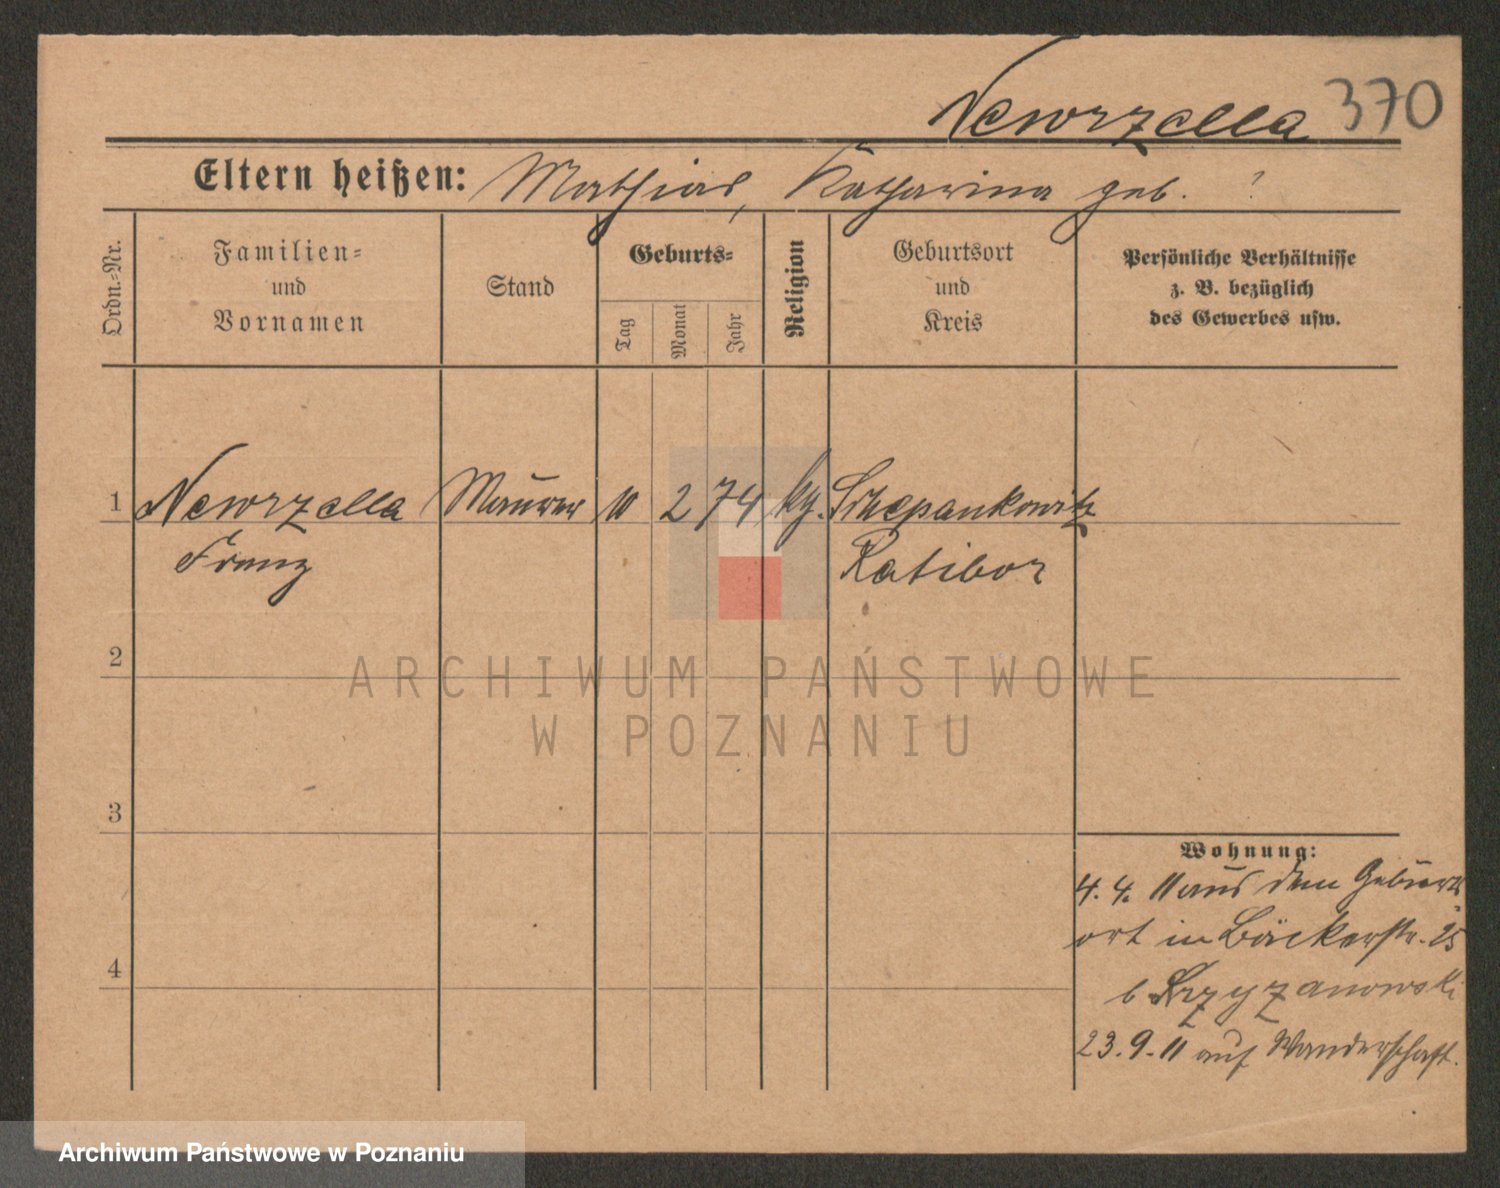 Newrzella 370
Eltern heißen: Mathias, Katharina geb. ?
Ordn.-Nr.
Familien-
und
Vornamen
Stand
Geburts-
Tag
Monat
Jahr
Religion
Geburtsort
und
Kreis
Persönliche Verhältnisse
z. B. bezüglich
des Gewerbes usw.
1 Newrzella Maurer 10 2 74 kg. Schepankowitz
Franz Ratibor
2
ARCHIWUM PAŃSTWOWE
W POZNANIU
3
Wohnung:
4. 4. 11 aus dem Geburts-
ort in Bäckerstr. 25
4
b Krzyzanowski
23. 9. 11 auf Wanderschaft.
Archiwum Państwowe w Poznaniu